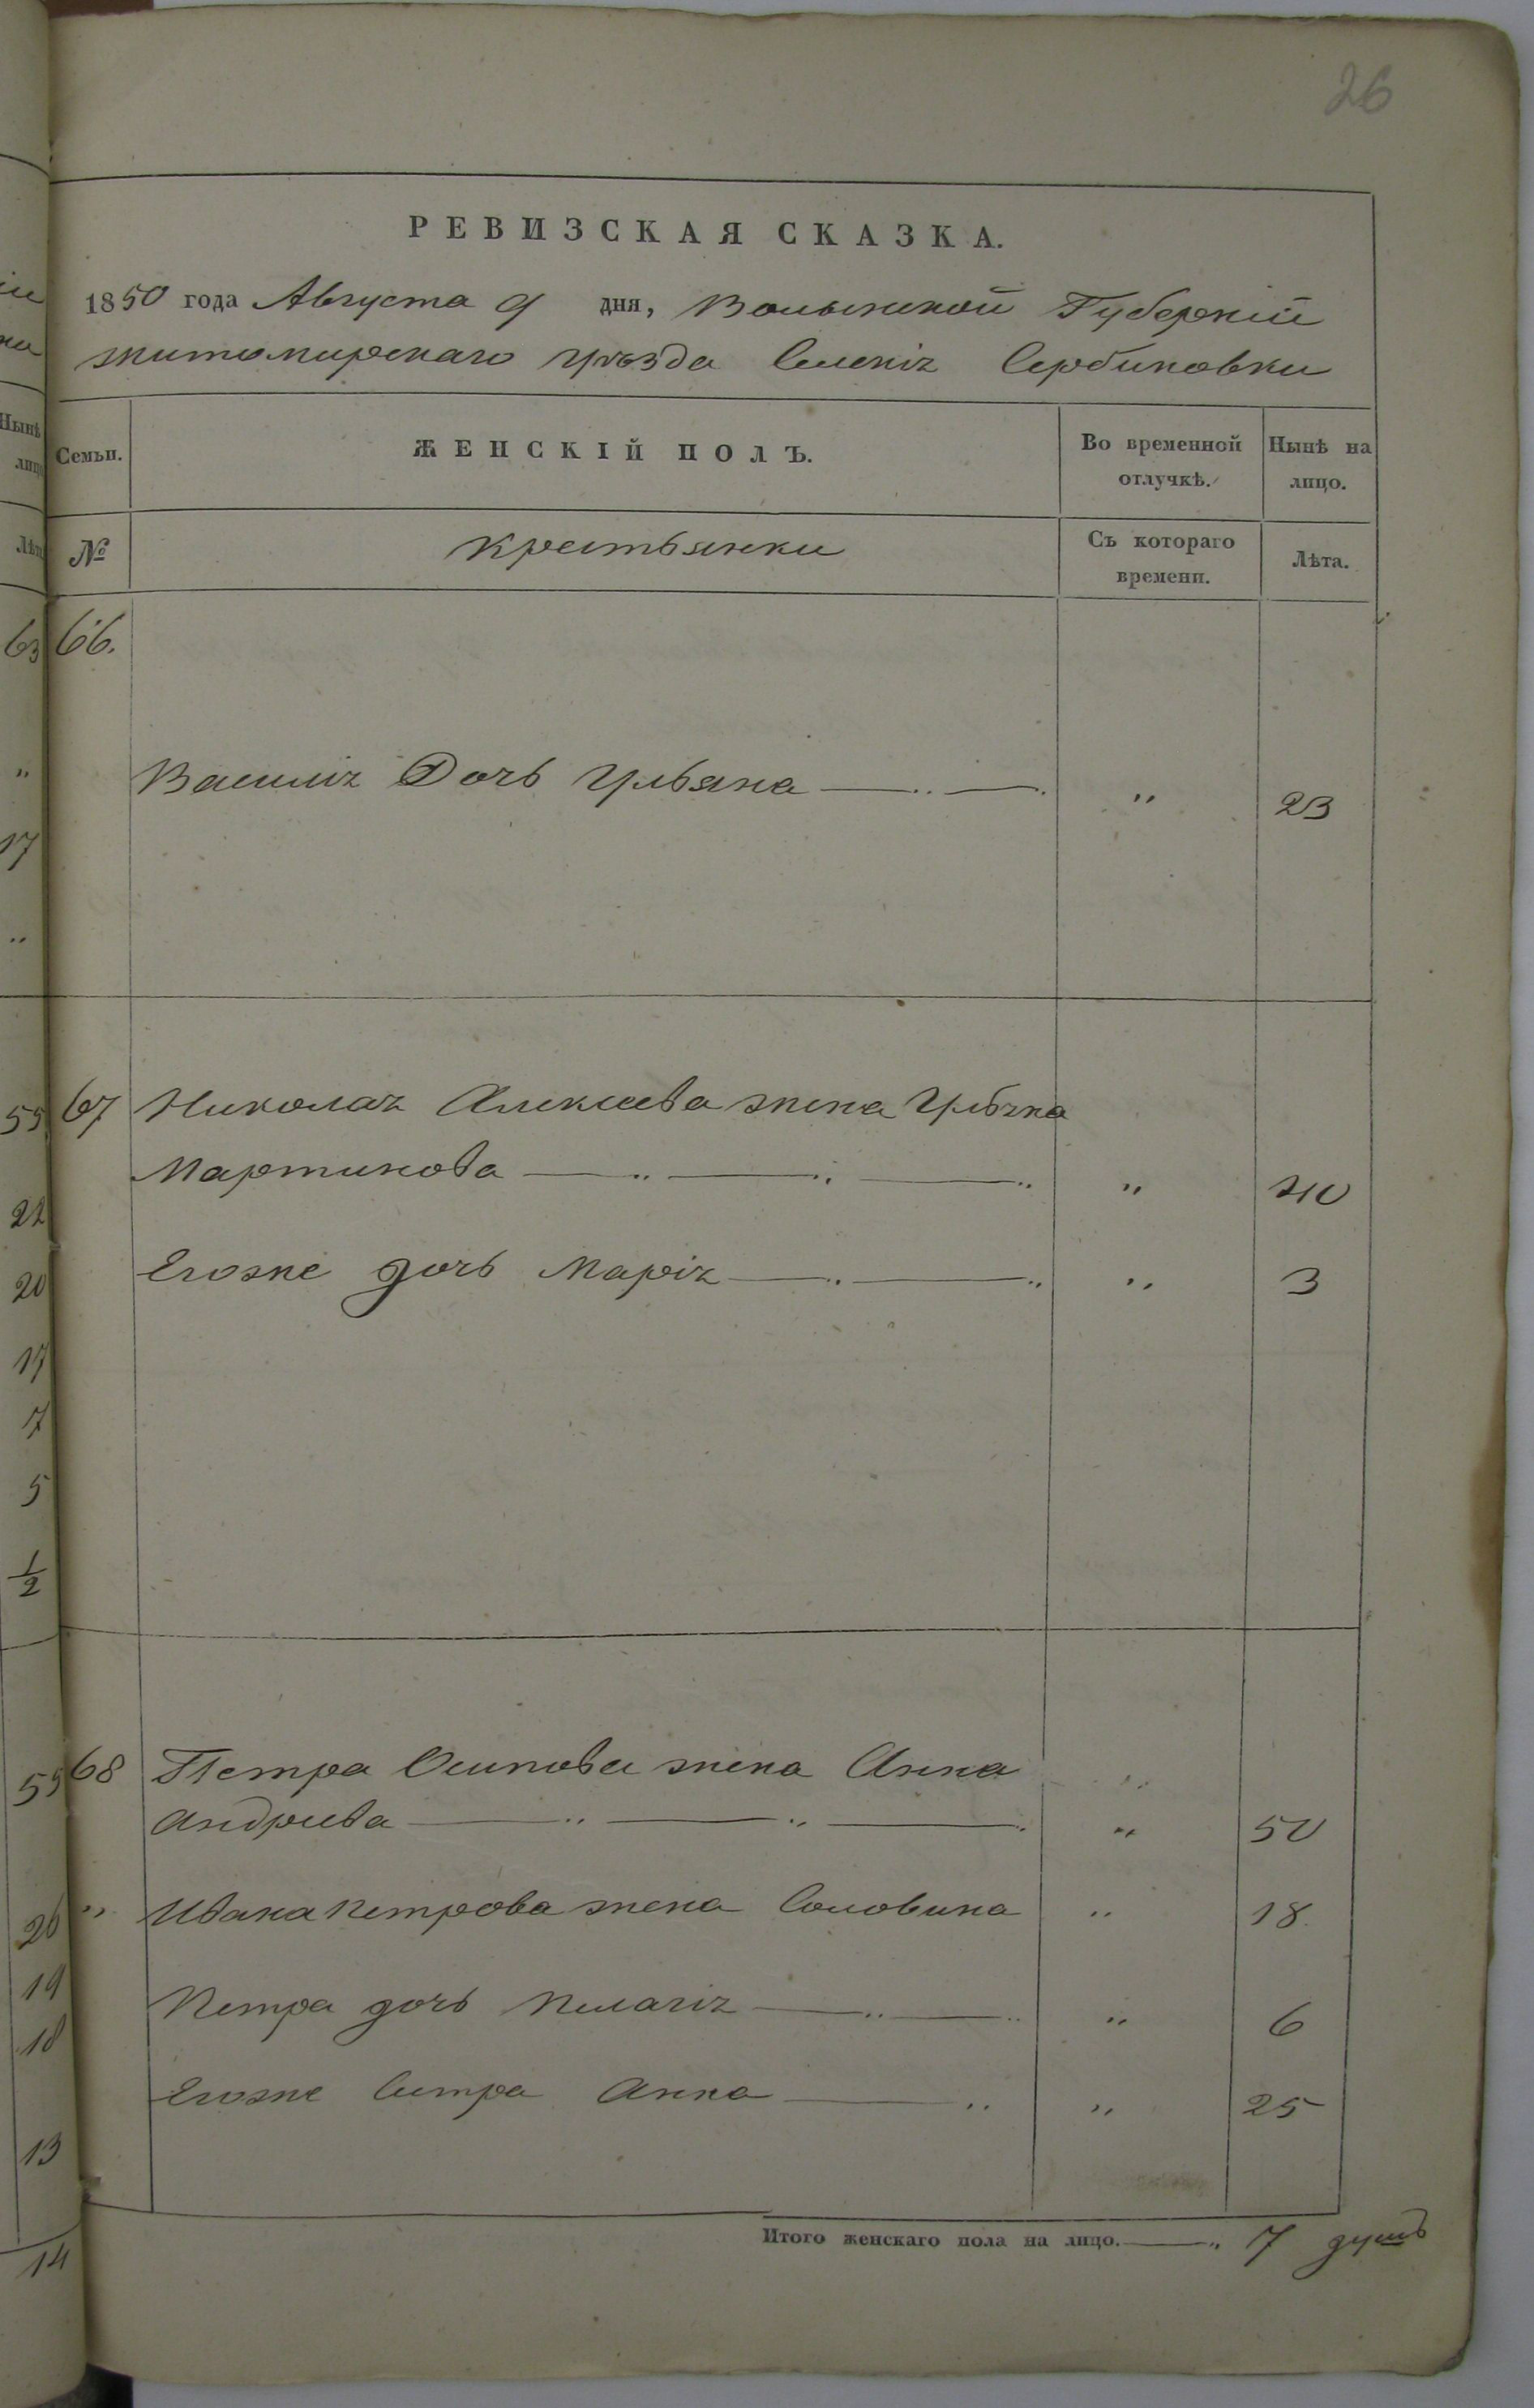 26
РЕВИЗСКАЯ СКАЗКА.
1850 года Августа 9 дня, Волынской Губерніи
житомирскаго уѣзда Селенія Сербиновки
Семьи.
ЖЕНСКІЙ ПОЛЪ.
Во временной отлучкѣ.
Нынѣ на лицо.
№
Крестьянки
Съ котораго времени.
Лѣта.
66.
Василія Дочь Ульяна „ 23
67 Николая Алексеева жена Ульяна
Мартинова „ 40
Егоже дочь Марія „ 3
68 Петра Осипова жена Анна
Андриева „ 50
„ Ивана Петрова жена Соловина „ 18
Петра дочь Пелагія „ 6
Егоже Систра Анна „ 25
Итого женскаго пола на лицо. 7 душъ
63
„
17
„
55
22
20
17
7
5
1/2
55
26
19
18
13
14